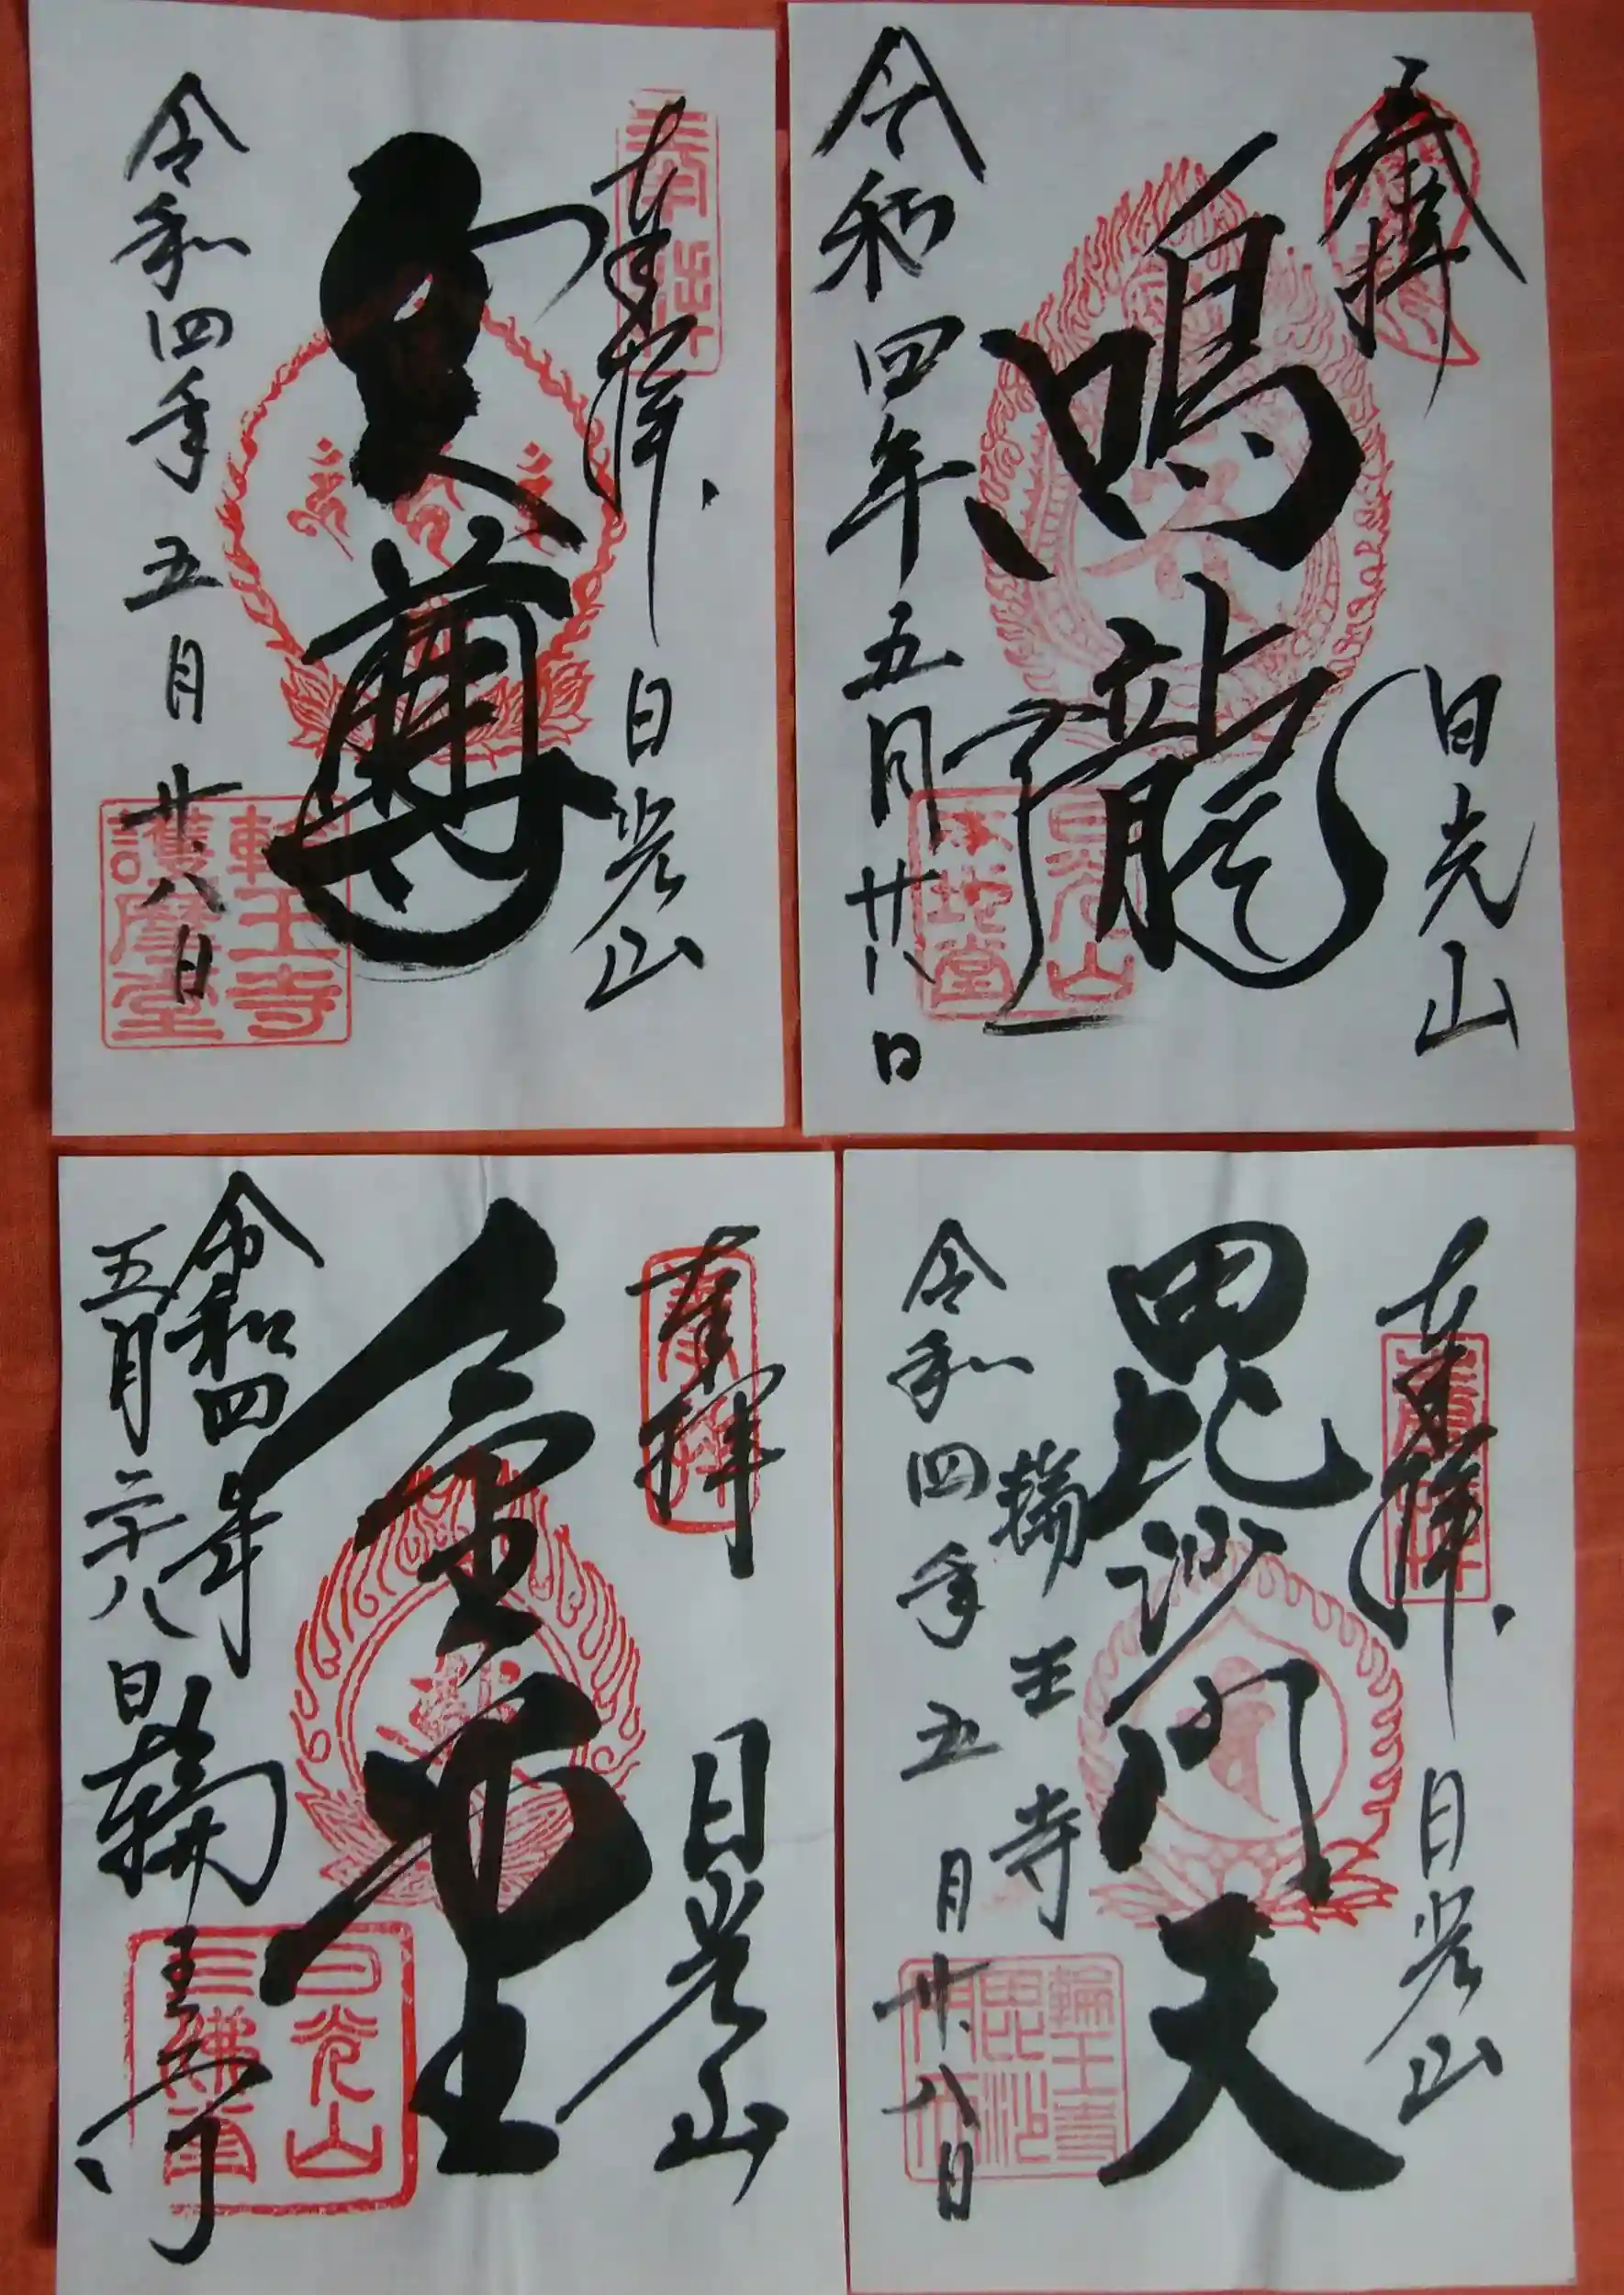 奉拝 日光山
鳴龍
令和四年五月廿八日
日光山
本地堂
奉拝
奉拝 日光山
尊
令和四年五月廿八日
輪王寺
護摩堂
奉拝
奉拝 日光山
毘沙門天
輪王寺
令和四年五月廿八日
輪王寺
毘沙
門天
奉拝
奉拝 日光山
金堂
令和四年
五月二十八日 輪王寺
日光山
三佛堂